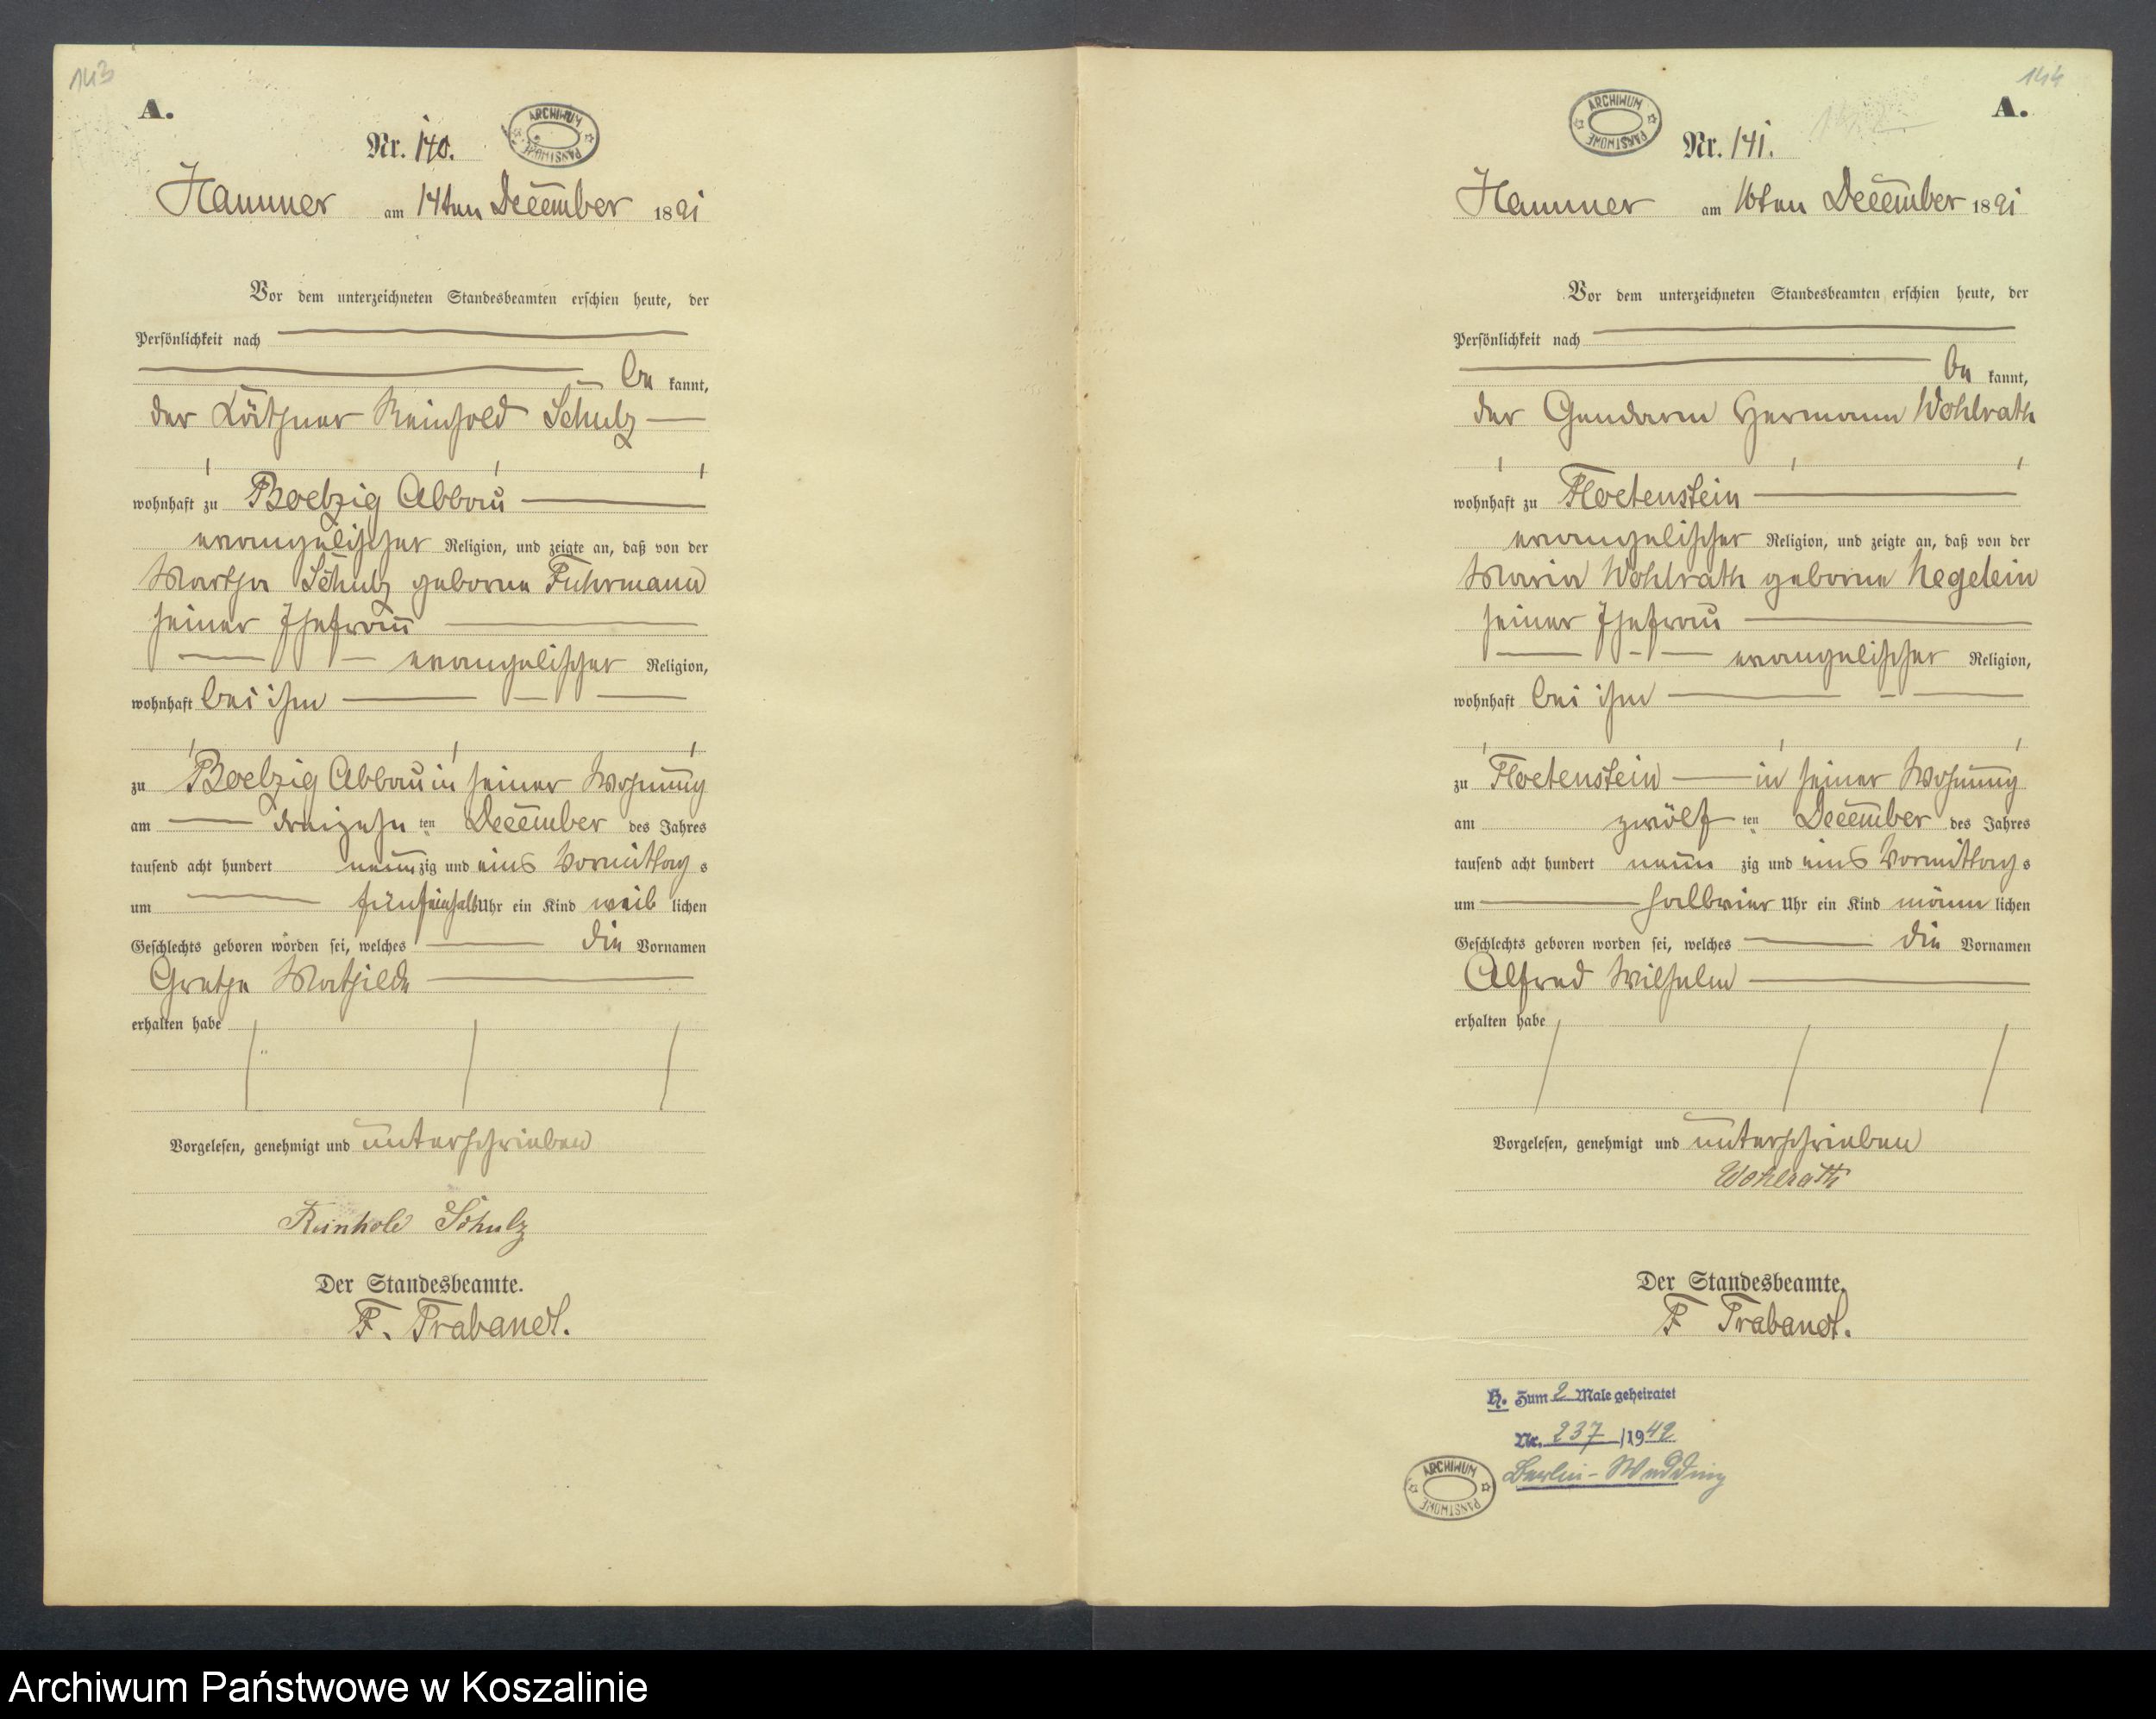 143
A.
ARCHIWUM PAŃSTWOWE
Nr. 140.
Hammer am 14ten December 1891
Vor dem unterzeichneten Standesbeamten erschien heute, der
Persönlichkeit nach
be kannt,
der Käthner Reinhold Schulz
wohnhaft zu Boelzig Abbau
evangelischer Religion, und zeigte an, daß von der
Martha Schulz geborne Fuhrmann
seiner Ehefrau
evangelischer Religion,
wohnhaft bei ihm
zu Boelzig Abbau in seiner Wohnung
am dreizehn ten December des Jahres
tausend acht hundert neun zig und eins Vormittag s
um fünfeinhalb Uhr ein Kind weib lichen
Geschlechts geboren worden sei, welches die Vornamen
Grethe Mathilde
erhalten habe
Vorgelesen, genehmigt und unterschrieben
Reinhold Schulz
Der Standesbeamte.
F. Trabandt.
144
A.
ARCHIWUM PAŃSTWOWE
Nr. 141.
Hammer am 16ten December 1891
Vor dem unterzeichneten Standesbeamten erschien heute, der
Persönlichkeit nach
be kannt,
der Gendarm Hermann Wohlrath
wohnhaft zu Floetenstein
evangelischer Religion, und zeigte an, daß von der
Maria Wohlrath geborne Negelein
seiner Ehefrau
evangelischer Religion,
wohnhaft bei ihm
zu Floetenstein in seiner Wohnung
am zwölf ten December des Jahres
tausend acht hundert neun zig und eins Vormittag s
um halbvier Uhr ein Kind männ lichen
Geschlechts geboren worden sei, welches die Vornamen
Alfred Wilhelm
erhalten habe
Vorgelesen, genehmigt und unterschrieben
Wohlrath
Der Standesbeamte.
F Trabandt.
H. Zum 2 Male geheiratet
Nr. 237 /1942
Berlin-Wedding
ARCHIWUM PAŃSTWOWE
Archiwum Państwowe w Koszalinie